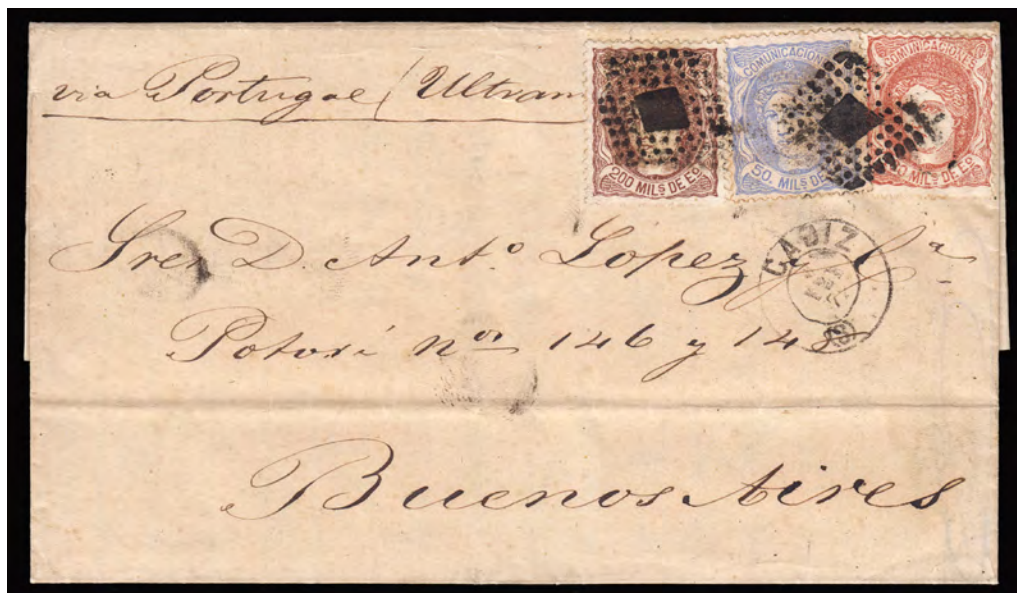 via Portugal (Ultram
COMUNICACIONES
200 MILS DE Eo
COMUNICACION
50. MILS DE
COMUNICACIONES
MILS DE Eo
CADIZ
Sres D. Anto Lopez y Ca
Potosi nos 146 y 148
Buenos Aires